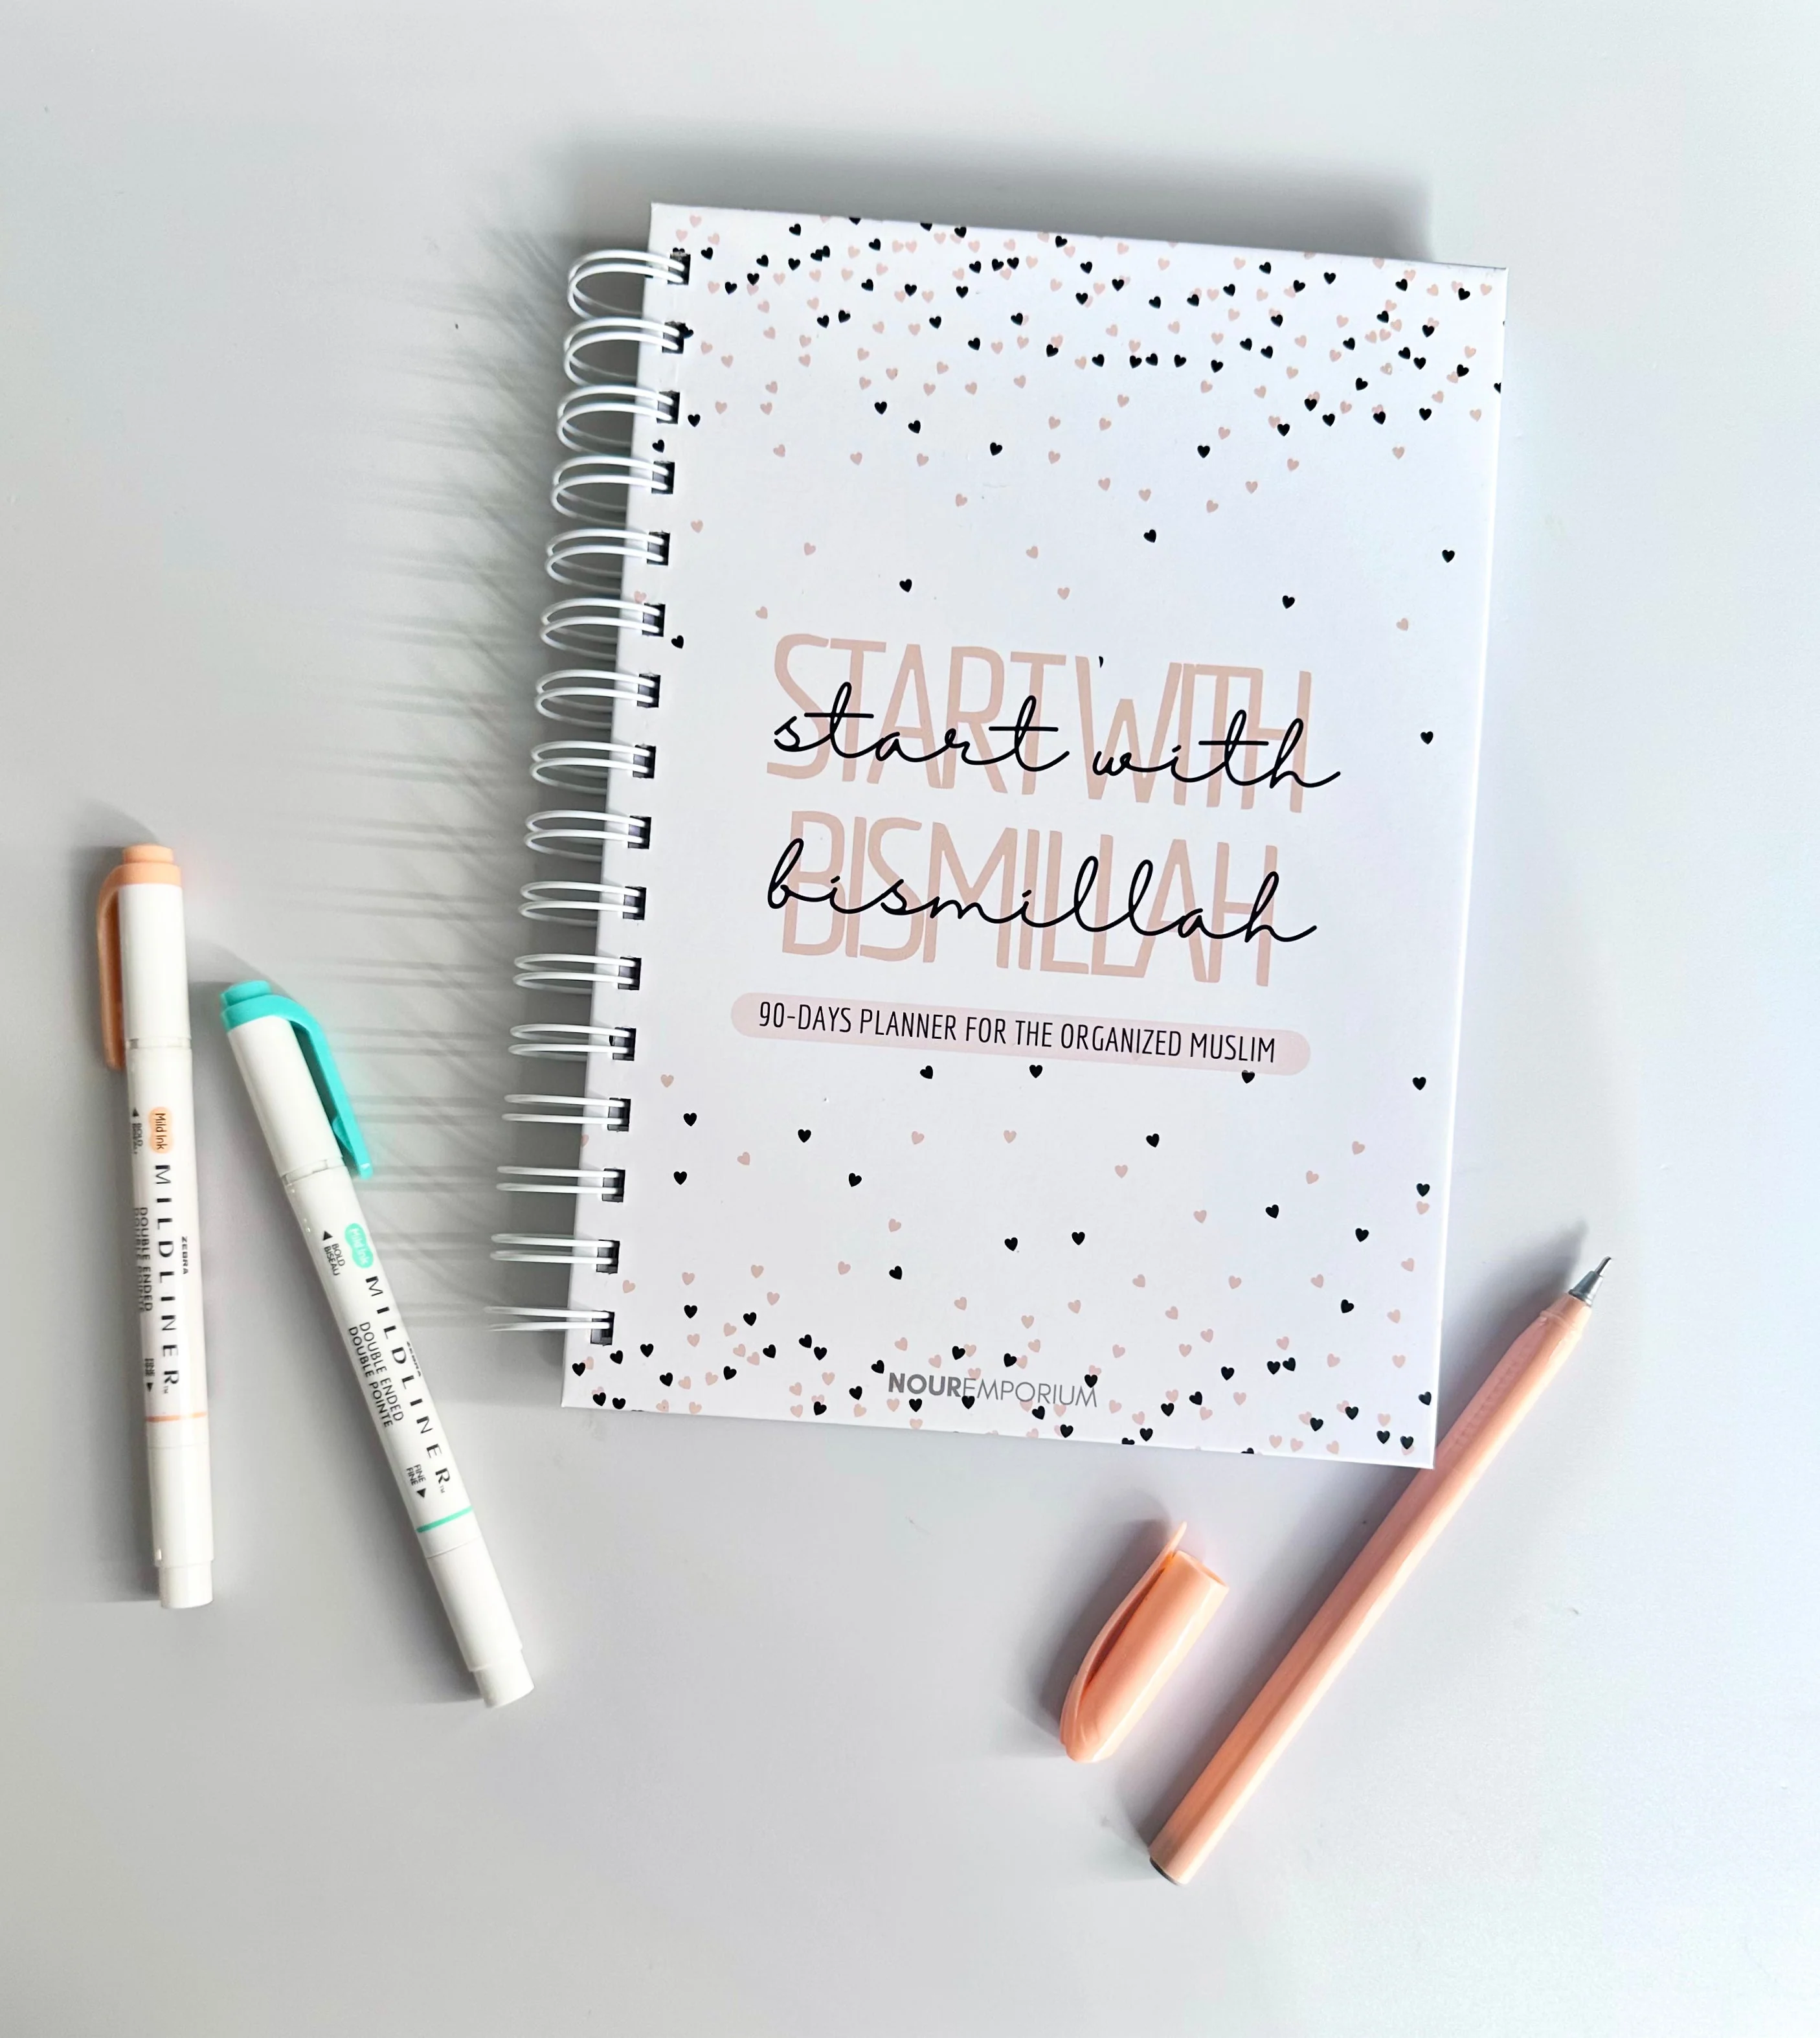 START WITH
start with
BISMILLAH
bismillah
90-DAYS PLANNER FOR THE ORGANIZED MUSLIM
NOUREMPORIUM
Mild Ink
ZEBRA
MILDLINER™
DOUBLE ENDED
DOUBLE POINTE
BOLD
BISEAU
Mild Ink
ZEBRA
MILDLINER™
DOUBLE ENDED
DOUBLE POINTE
FINE
FINE